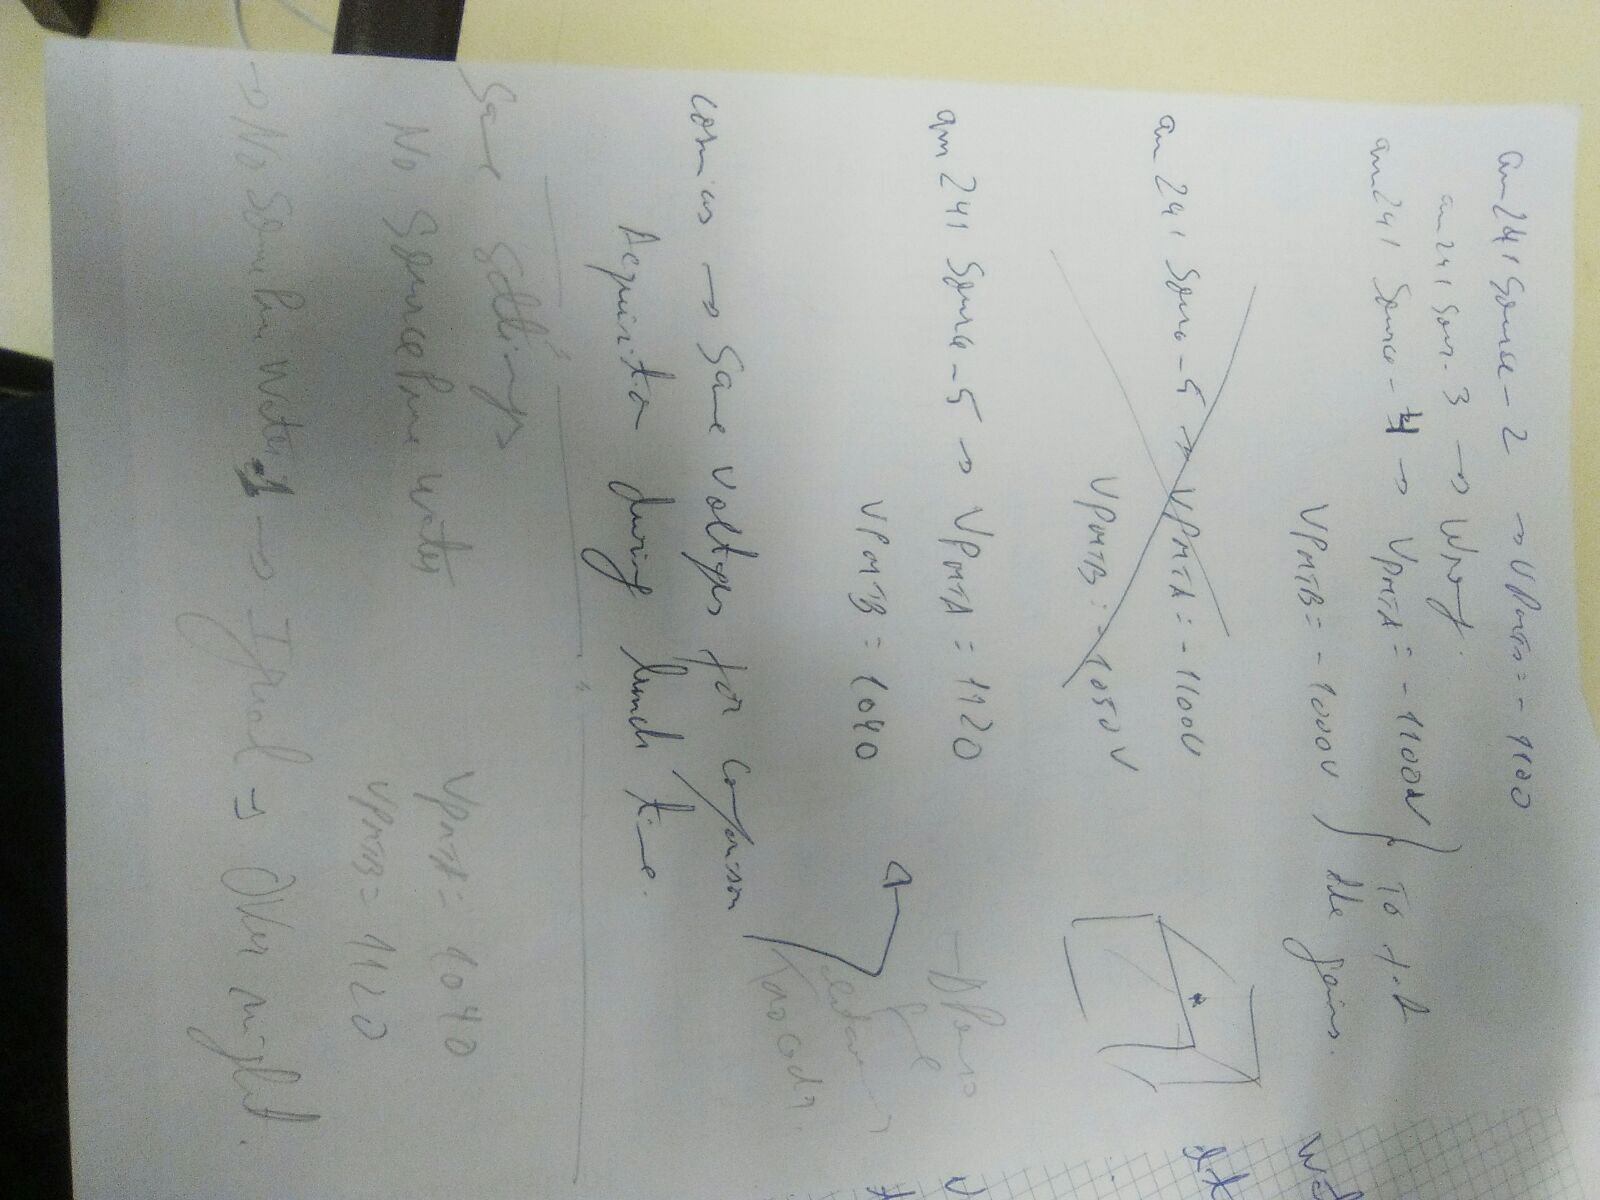 am241Source-2 → VPMTA = -1100
am241 Sour-3 → Wrong.
am241 Source-4 → VPMTA = -1100V } To test
VPMTB = -1000V } the gains.
am241 Source-5 → VPMTA = -1100V
VPMTB = -1050V
am241 Source-5 → VPMTA = 1120
VPMTB = 1040
Cosmics → Same Voltages for Comparison
Acquisition during lunch time.
Same Settings
No Source Pure Water VPMTA = 1040
VPMTB = 1120
→ No Source Pure Water_1 → → Over night.